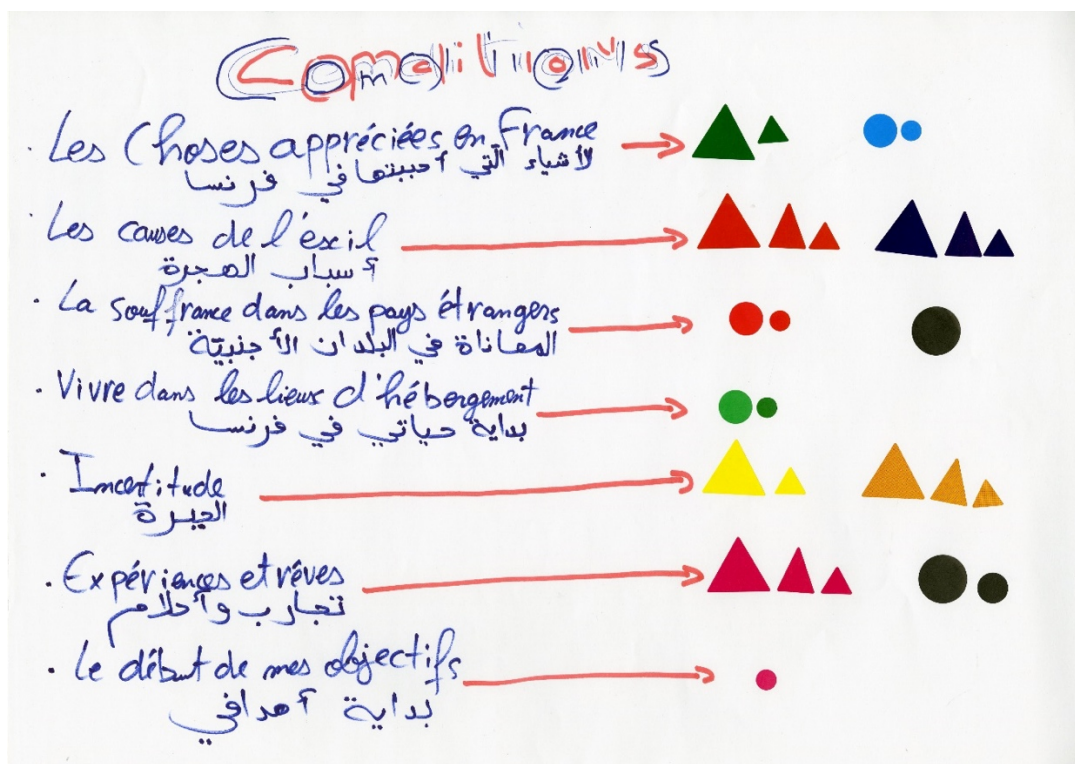 Comditions
. Les Choses appréciées en France
الأشياء التي أحببتها في فرنسا
. Les causes de l'éxil
أسباب الهجرة
. La souffrance dans les pays étrangers
المعاناة في البلدان الأجنبيّة
. Vivre dans les lieux d'hébergement
بداية حياتي في فرنسا
. Incertitude
الحيرة
. Expériences et rêves
تجارب وأحلام
. Le début de mes objectifs
بداية أهدافي